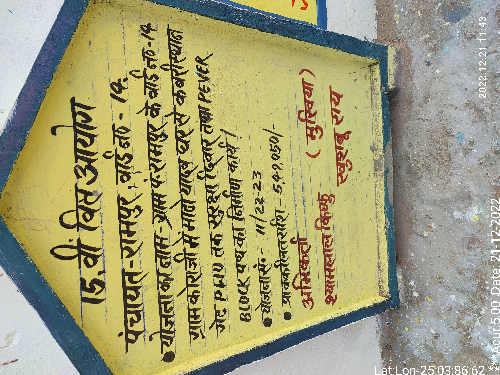 15, वी वित्त आयोग
पंचायत-रामपुर, वार्ड नं० - 14.
• योजना का नाम - ग्राम पं. रामपुर के वार्ड नं० - 14
ग्राम कोराजी में मादो यादव घर से कबरीस्थान
गेट PWD तक सुरक्षा किनार तक PEVER
BLOCK पथ का निर्माण कार्य।
• योजना सं० - 11/22-23
• प्राक्कलित राशि - 5,49,050/-
अभिकर्ता ( मुखिया )
श्यामलाल किस्कु खुशबू राय
2022.12.21 11:43
Lat Lon-25.03.86.62
Date 21-12-2022